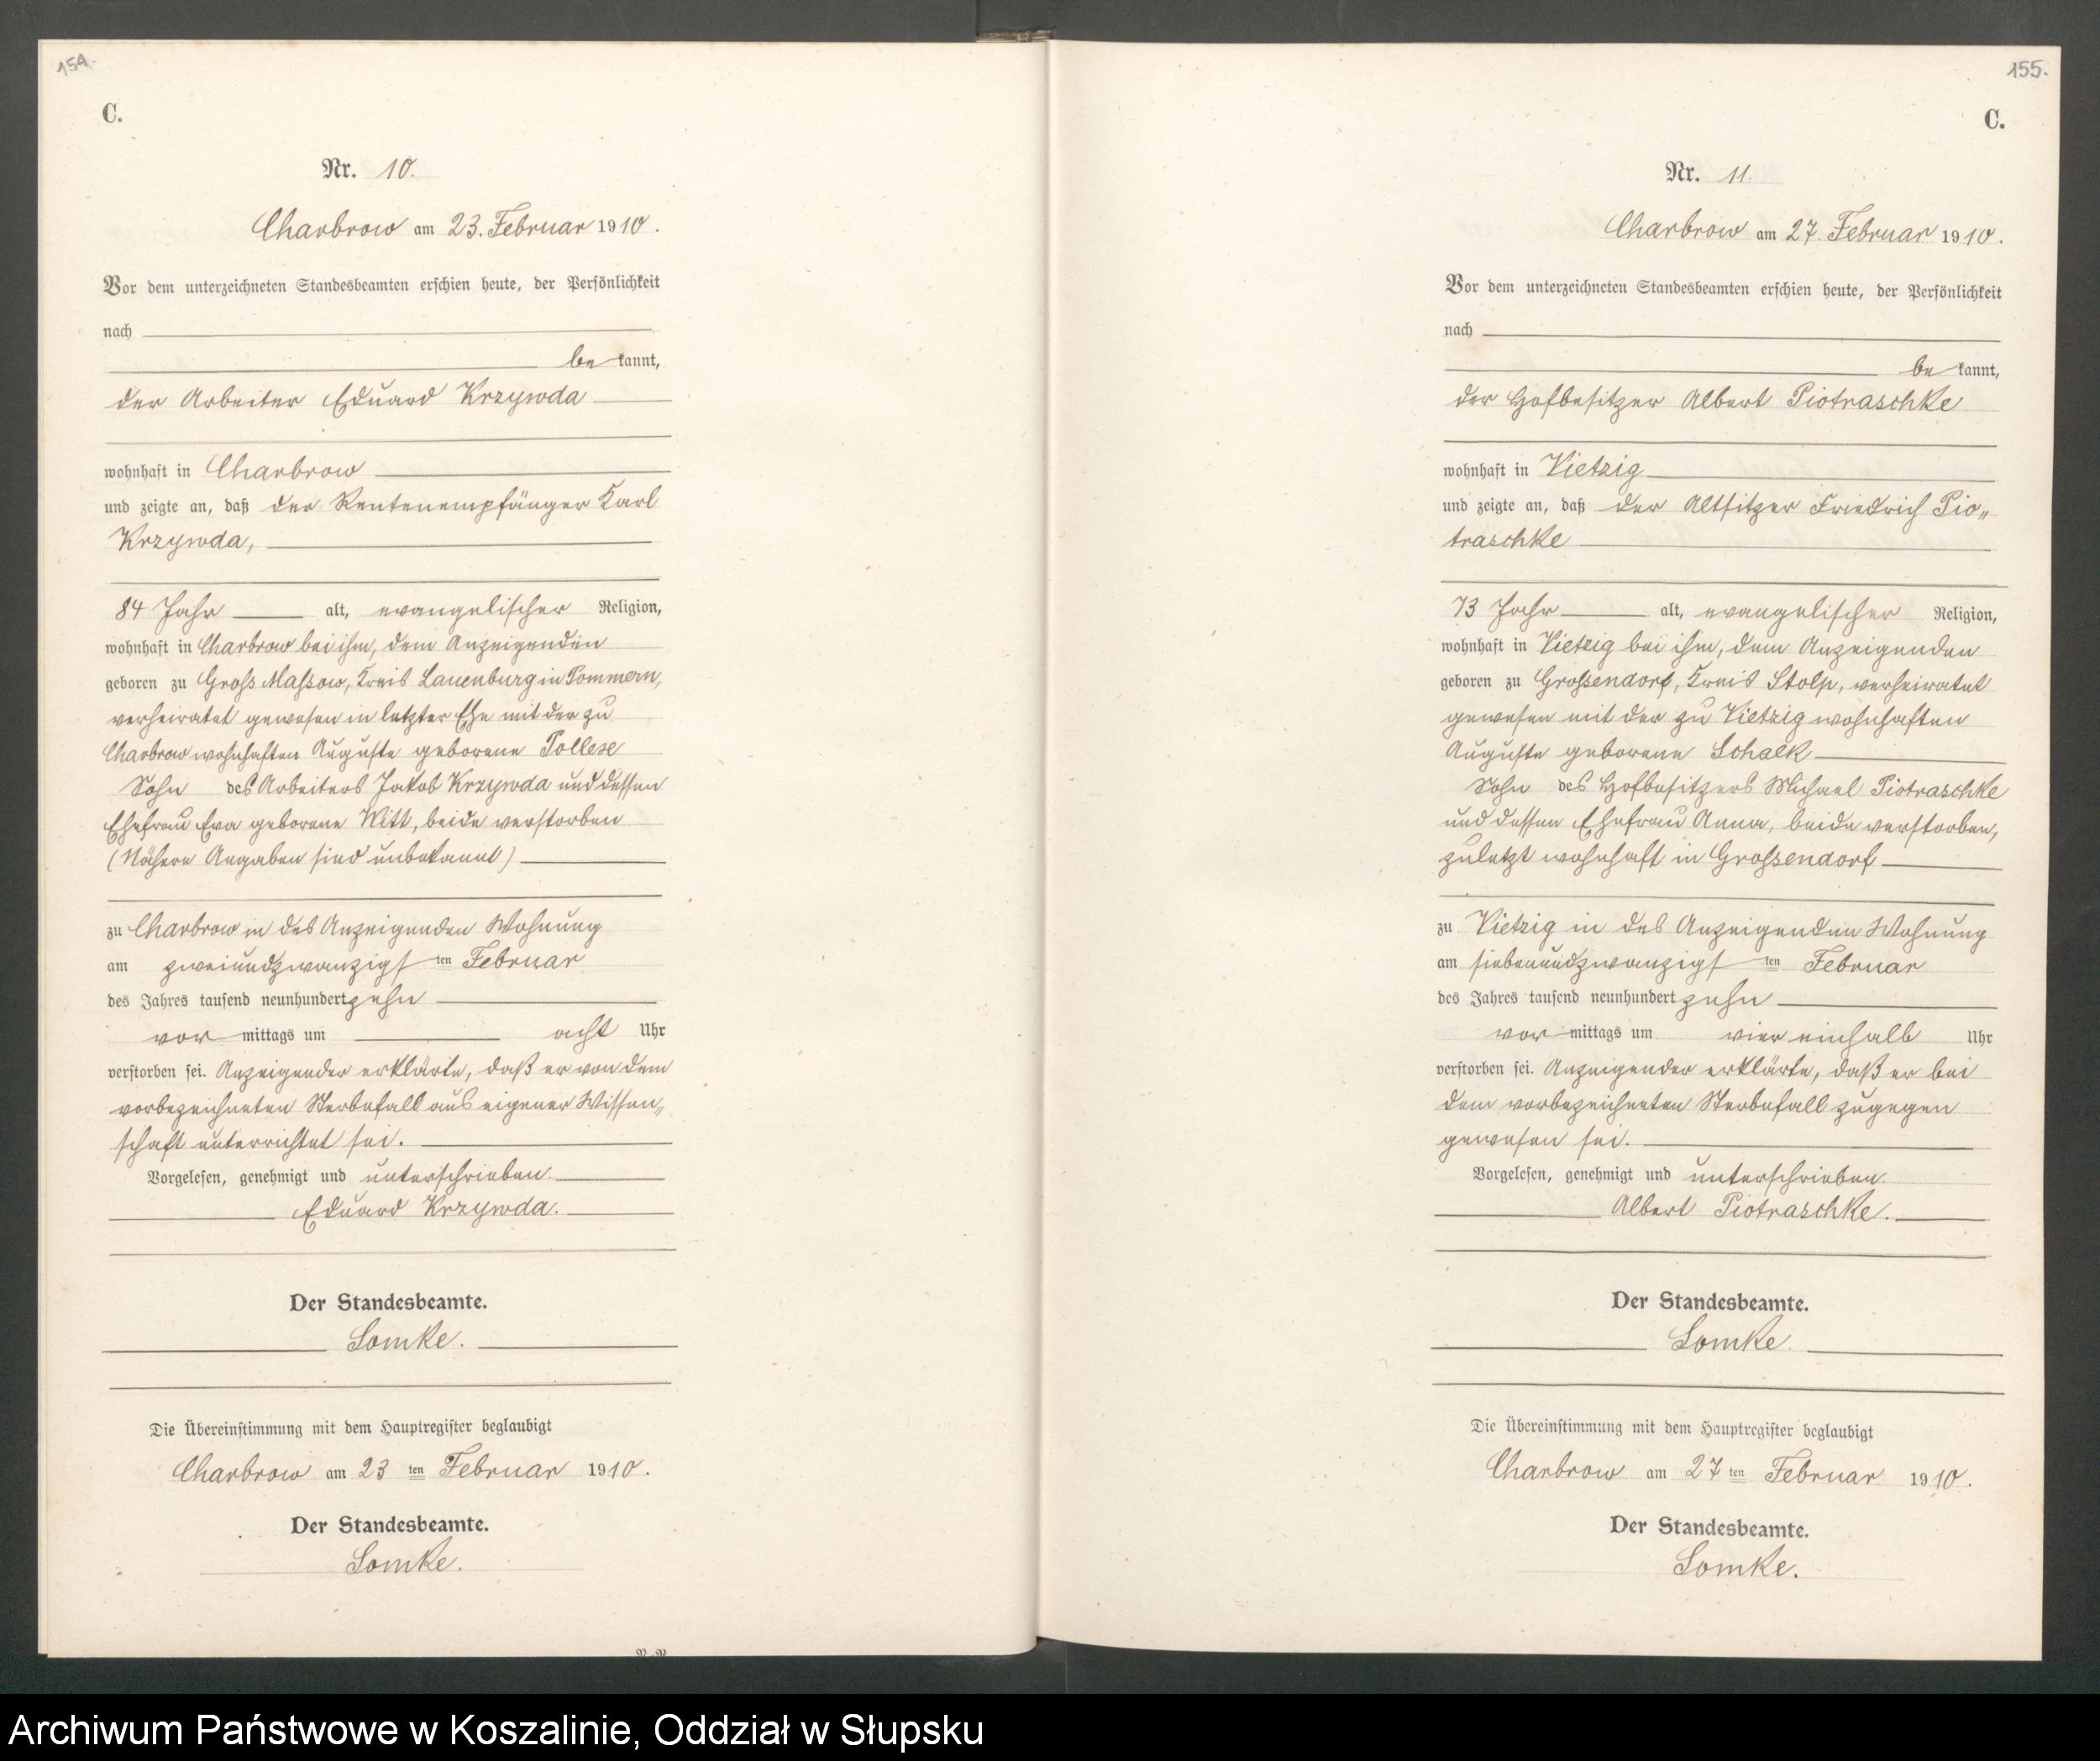 154.
C.
Nr. 10.
Charbrow am 23. Februar 1910.
Vor dem unterzeichneten Standesbeamten erschien heute, der Persönlichkeit
nach
be kannt,
der Arbeiter Eduard Krzywda
wohnhaft in Charbrow
und zeigte an, daß der Rentenempfänger Karl
Krzywda,
84 Jahr alt, evangelischer Religion,
wohnhaft in Charbrow bei ihm, dem Anzeigenden
geboren zu Gross Massow, Kreis Lauenburg in Pommern,
verheiratet gewesen in letzter Ehe mit der zu
Charbrow wohnhaften Auguste geborene Pollese
Sohn des Arbeiters Jakob Krzywda und dessen
Ehefrau Eva geborene Witt, beide verstorben
(Nähere Angaben sind unbekannt)
zu Charbrow in des Anzeigenden Wohnung
am zweiundzwanzigsten Februar
des Jahres tausend neunhundertzehn
vor mittags um acht Uhr
verstorben sei. Anzeigender erklärte, daß er von dem
vorbezeichneten Sterbefall aus eigener Wissen„
schaft unterrichtet sei.
Vorgelesen, genehmigt und unterschrieben.
Eduard Krzywda.
Der Standesbeamte.
Lomke.
Die Übereinstimmung mit dem Hauptregister beglaubigt
Charbrow am 23 ten Februar 1910.
Der Standesbeamte.
Lomke.
155.
C.
Nr. 11.
Charbrow am 27. Februar 1910.
Vor dem unterzeichneten Standesbeamten erschien heute, der Persönlichkeit
nach
be kannt,
der Hofbesitzer Albert Piotraschke
wohnhaft in Vietzig
und zeigte an, daß der Altsitzer Friedrich Pio„
traschke
73 Jahr alt, evangelischer Religion,
wohnhaft in Vietzig bei ihm, dem Anzeigenden
geboren zu Grossendorf, Kreis Stolp, verheiratet
gewesen mit der zu Vietzig wohnhaften
Auguste geborene Schalk
Sohn des Hofbesitzers Michael Piotraschke
und dessen Ehefrau Anna, beide verstorben,
zuletzt wohnhaft in Grossendorf
zu Vietzig in des Anzeigenden Wohnung
am siebenundzwanzigsten Februar
des Jahres tausend neunhundert zehn
vor mittags um vier einhalb Uhr
verstorben sei. Anzeigender erklärte, daß er bei
dem vorbezeichneten Sterbefall zugegen
gewesen sei.
Vorgelesen, genehmigt und unterschrieben.
Albert Piotraschke.
Der Standesbeamte.
Lomke.
Die Übereinstimmung mit dem Hauptregister beglaubigt
Charbrow am 27 ten Februar 1910.
Der Standesbeamte.
Lomke.
Archiwum Państwowe w Koszalinie, Oddział w Słupsku